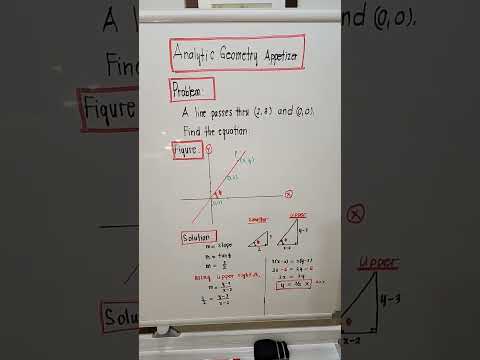 Analytic Geometry Appetizer
Problem:
A line passes thru (2,3) and (0,0).
Find the equation.
Figure:
Y
X
(x, y)
(0,0)
Solution:
smaller
upper
m = slope
m = tan θ
m = 3/2
Using upper right Δ
m = y-3/x-2
3/2 = y-3/x-2
2
θ
y-3
x-2
3(x-2) = 2(y-3)
3x - 6 = 2y - 6
3x = 2y
y = 3/2 x
and (0,0).
Find
Figure
Solu
upper
θ
y-3
x-2